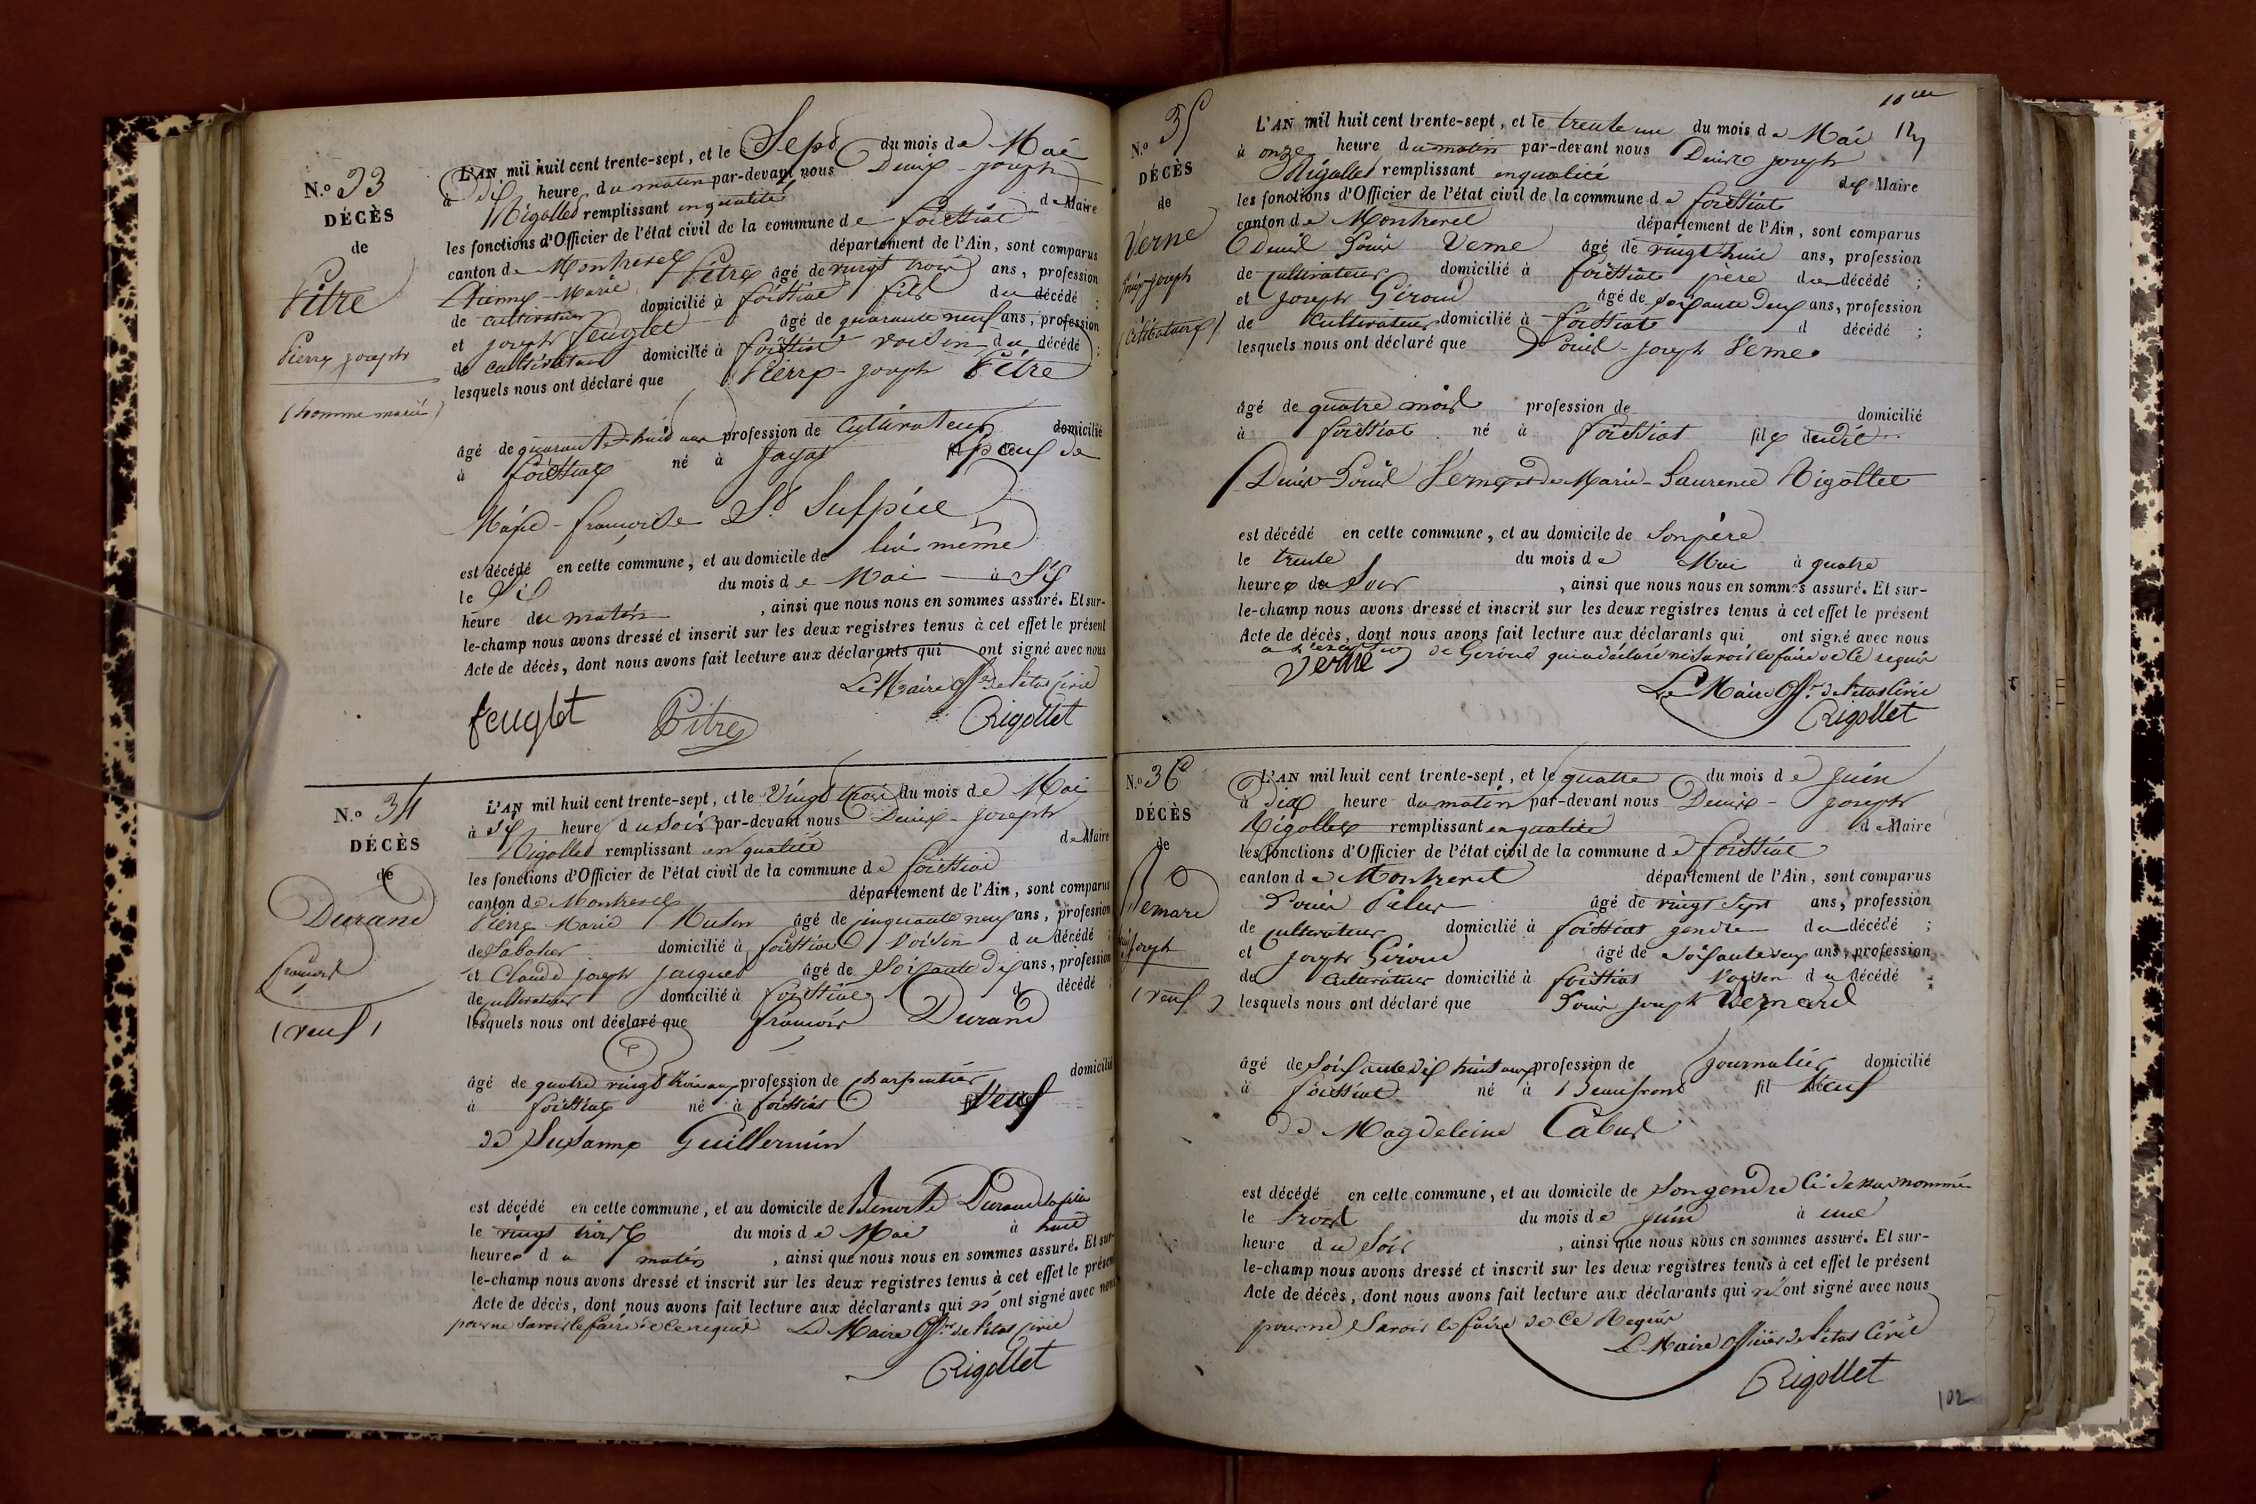 N.o 33
DÉCÈS
de
Pitre
Pierre joseph
(homme marié)
L'AN mil huit cent trente-sept, et le Sept du mois de Mai
à dix heure du matin par-devant nous Denis-joseph
Rigollet remplissant en qualité de Maire
les fonctions d'Officier de l'état civil de la commune de foissiat
canton de Montrevel département de l'Ain, sont comparus
Etienne-Marie Pitre âgé de vingt trois ans, profession
de cultivateur domicilié à foissiat fils du décédé ;
et joseph feuglet âgé de quarante neuf ans, profession
de cultivateur domicilié à foissiat voisin du décédé ;
lesquels nous ont déclaré que Pierre-joseph Pitre
âgé de quarante-huit ans profession de cultivateur domicilié
à foissiat né à jayat époux de
Marie-francoise St Sulpice
est décédé en cette commune, et au domicile de lui même
le du mois de Mai à Six
heure du matin , ainsi que nous nous en sommes assuré. Et sur-
le-champ nous avons dressé et inscrit sur les deux registres tenus à cet effet le présent
Acte de décès, dont nous avons fait lecture aux déclarants qui ont signé avec nous
Le Maire Offr. de l'état Civil
feuglet Pitre Rigollet
N.o 34
DÉCÈS
de
Durand
francois
(veuf)
L'AN mil huit cent trente-sept, et le Vingt trois du mois de Mai
à Six heure du soir par-devant nous Denis-joseph
Rigollet remplissant en qualité de Maire
les fonctions d'Officier de l'état civil de la commune de foissiat
canton de Montrevel département de l'Ain, sont comparus
Pierre Marie âgé de cinquante neuf ans, profession
de Sabotier domicilié à foissiat Voisin du décédé ;
et Claude joseph jacquet âgé de Soixante dix ans, profession
de cultivateur domicilié à foissiat d décédé ;
lesquels nous ont déclaré que francois Durand
âgé de quatre vingt trois ans profession de charpentier domicilié
à foissiat né à foissiat Veuf
de Susanne Guillermin
est décédé en cette commune, et au domicile de Benoite Durand sa fille
le vingt trois du mois de Mai à huit
heures du matin , ainsi que nous nous en sommes assuré. Et sur-
le-champ nous avons dressé et inscrit sur les deux registres tenus à cet effet le présent
Acte de décès, dont nous avons fait lecture aux déclarants qui n'ont signé avec nous
pour ne savoir le faire de ce requis Le Maire Offr. de l'état Civil
Rigollet
N.o 35
DÉCÈS
de
Verne
joseph
(célibataire)
L'AN mil huit cent trente-sept, et le trente un du mois de Mai
à onze heure du matin par-devant nous Denis joseph
Rigollet remplissant en qualité de Maire
les fonctions d'Officier de l'état civil de la commune de foissiat
canton de Montrevel département de l'Ain, sont comparus
Denis Louis Verne âgé de vingt huit ans, profession
de cultivateur domicilié à foissiat père du décédé ;
et joseph Giroud âgé de soixante deux ans, profession
de cultivateur domicilié à foissiat d décédé ;
lesquels nous ont déclaré que Louis-joseph Verne
âgé de quatre mois profession de domicilié
à foissiat né à foissiat fils de
Denis Louis Verne et de Marie-Laurence Rigollet
est décédé en cette commune, et au domicile de son père
le trente du mois de Mai à quatre
heures du Soir , ainsi que nous nous en sommes assuré. Et sur-
le-champ nous avons dressé et inscrit sur les deux registres tenus à cet effet le présent
Acte de décès, dont nous avons fait lecture aux déclarants qui ont signé avec nous
a l'exception de Giroud qui a déclaré ne savoir le faire de ce requis
verne Le Maire Offr. de l'état Civil
Rigollet
N.o 36
DÉCÈS
de
joseph
(veuf)
L'AN mil huit cent trente-sept, et le quatre du mois de juin
à dix heure du matin par-devant nous Denis-joseph
Rigollet remplissant en qualité de Maire
les fonctions d'Officier de l'état civil de la commune de foissiat
canton de Montrevel département de l'Ain, sont comparus
Louis âgé de vingt sept ans, profession
de cultivateur domicilié à foissiat gendre du décédé ;
et joseph Giroud âgé de soixante deux ans, profession
de cultivateur domicilié à foissiat Voisin du décédé ;
lesquels nous ont déclaré que Louis joseph
âgé de Soixante dix huit ans profession de journalier domicilié
à foissiat né à fil Veuf
de Magdeleine
est décédé en cette commune, et au domicile de son gendre ci dessus nommé
le trois du mois de juin à une
heure du Soir , ainsi que nous nous en sommes assuré. Et sur-
le-champ nous avons dressé et inscrit sur les deux registres tenus à cet effet le présent
Acte de décès, dont nous avons fait lecture aux déclarants qui n'ont signé avec nous
pour ne Savoir le faire de ce Requis
Le Maire officier de l'état Civil
Rigollet
102